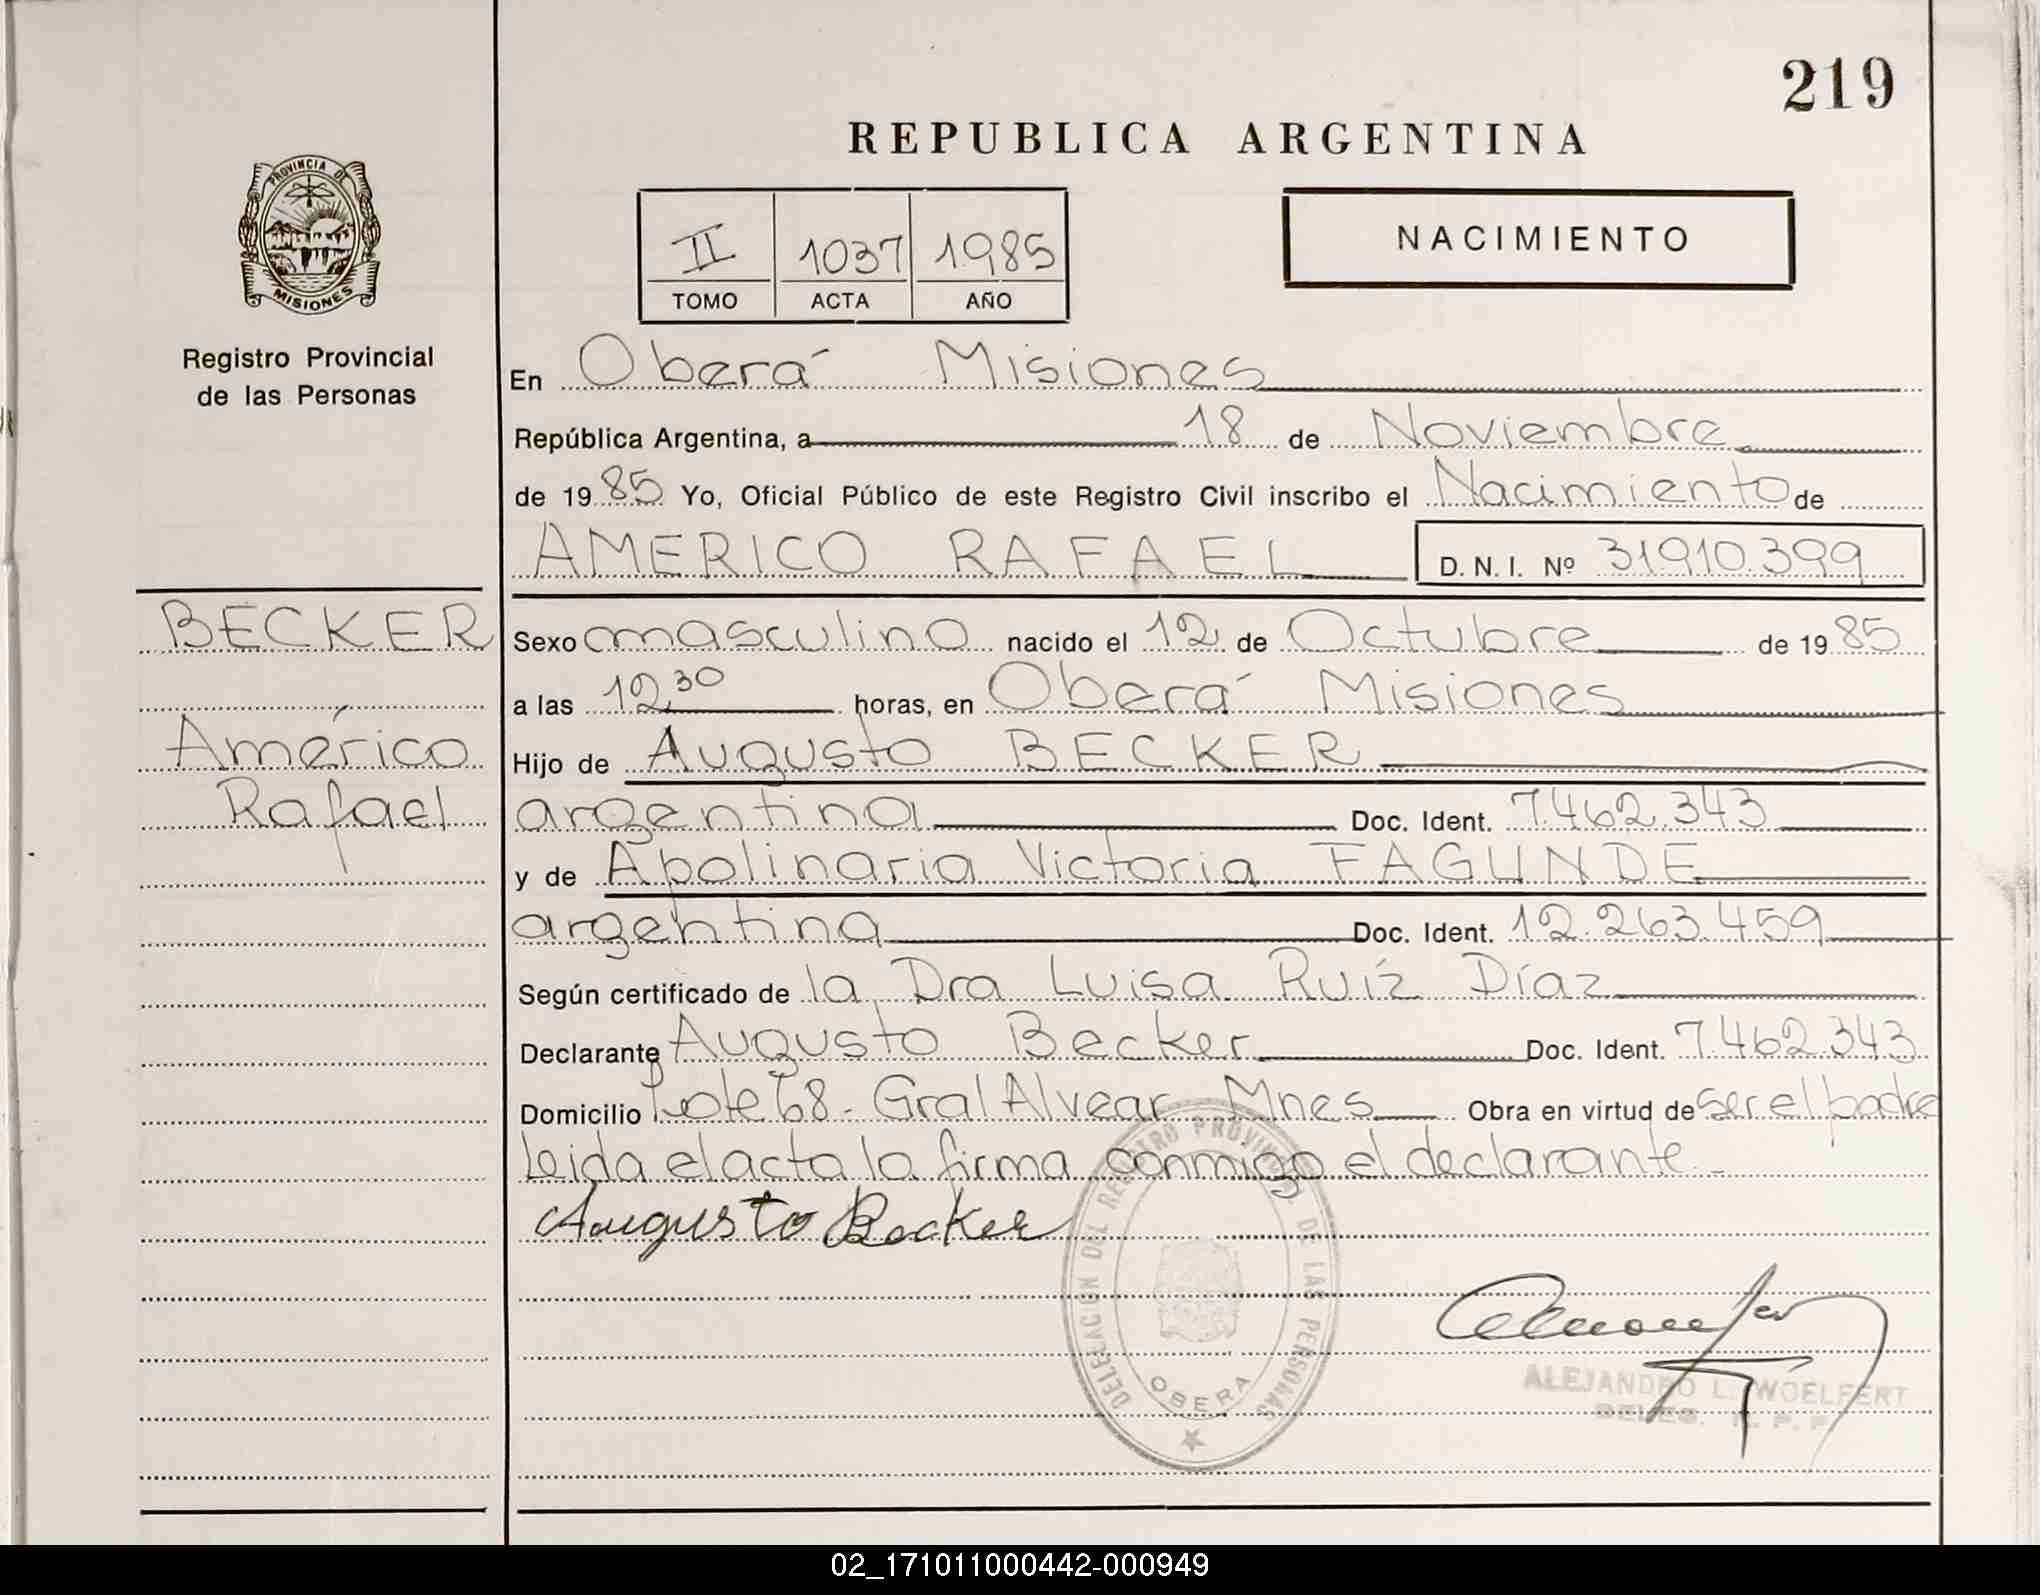 219
REPUBLICA ARGENTINA
PROVINCIA DE
MISIONES
Registro Provincial
de las Personas
II 1037 1985
TOMO ACTA AÑO
NACIMIENTO
En Oberá Misiones
República Argentina, a 18 de Noviembre
de 1985 Yo, Oficial Público de este Registro Civil inscribo el Nacimiento de
AMERICO RAFAEL D. N. I. Nº 31.910.399
BECKER
Américo
Rafael
Sexo masculino nacido el 12 de Octubre de 1985
a las 12,30 horas, en Oberá Misiones
Hijo de Augusto BECKER
argentina Doc. Ident. 7.462.343
y de Apolinaria Victoria FAGUNDE
argentina Doc. Ident. 12.263.459
Según certificado de la Dra Luisa Ruíz Díaz
Declarante Augusto Becker Doc. Ident. 7.462.343
Domicilio Lote 68 - Gral Alvear Mnes Obra en virtud de ser el padre
Leida el acta la firma conmigo el declarante -
Augusto Becker
DELEGACION DEL REGISTRO PROVINCIAL DE LAS PERSONAS
OBERA
ALEJANDRO L. WOELFERT
02_171011000442-000949